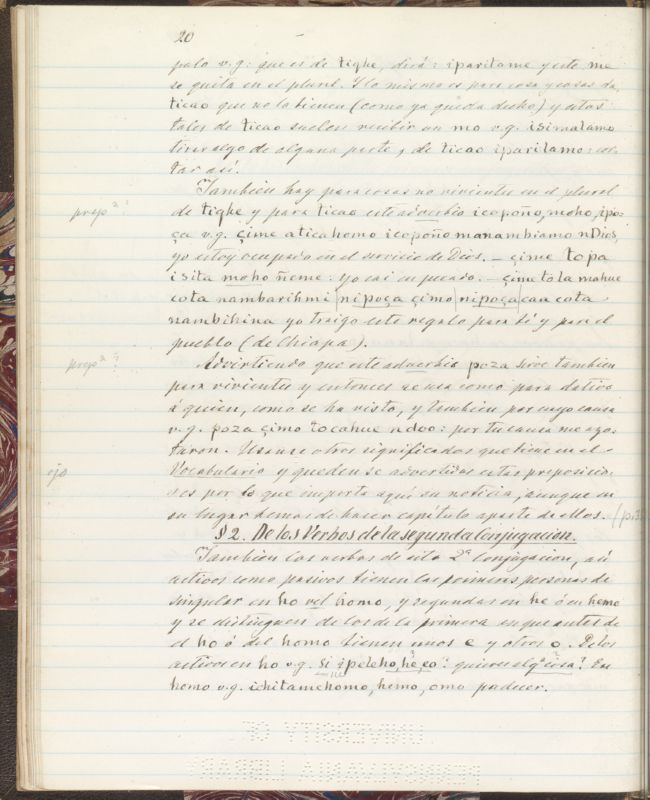 20
palo v.g: que es de tighe, dirá: iparitame y este me
se quita en el plural. Y lo mismo es para cosa y cosas de
ticao que no la tienen (como ya queda dicho) y estos
tales de ticao suelen recibir un mo v.g. isimatamo
tirar algo de alguna parte, de ticao iparitamo: cor-
tar así.
Tambien hay para cosas no vivientes en el plural
prepⁿ?
de tighe y para ticao este adverbio icopoño, moho, ipo-
ça v.g. çime aticahomo icopoño manambiamo nDios,
yo estoy ocupado en el servicio de Dios. — çime topa
isita moho ñeme: yo caí en pecado. — çime tola mahue
cota nambarihmi nipoça çimo nipoça caa cota
nambihina yo traigo este regalo para tí y para el
pueblo (de Chiapa).
prepⁿ?
Advirtiendo que este adverbio poza sirve tambien
para vivientes y entonces se usa como para dativo
á quien, como se ha visto, y tambien por cuya causa
v.g. poza çimo tocahue ndoo: por tu causa me azo-
taron. Usanse otros significados que tiene en el
ojo
Vocabulario y quedense advertidas estas preposicio-
nes por lo que importa aquí su noticia, aunque en
su lugar hemos de hacer capítulo aparte de ellos.
§ 2. De los Verbos de la segunda Conjugacion.
Tambien los verbos de esta 2ª Conjugacion, así
activos como pasivos tienen las primeras personas de
singular en ho vel homo, y segundas en he ó en hemo
y se distinguen de los de la primera en que antes de
el ho ó del homo tienen unos e y otros o. De los
activos en ho v.g. si peleho, he, eo: quieres alguª cosa? En
homo v.g. ichitamehomo, hemo, omo padecer.
UNIVERSITY OF
PENNSYLVANIA LIBRARY